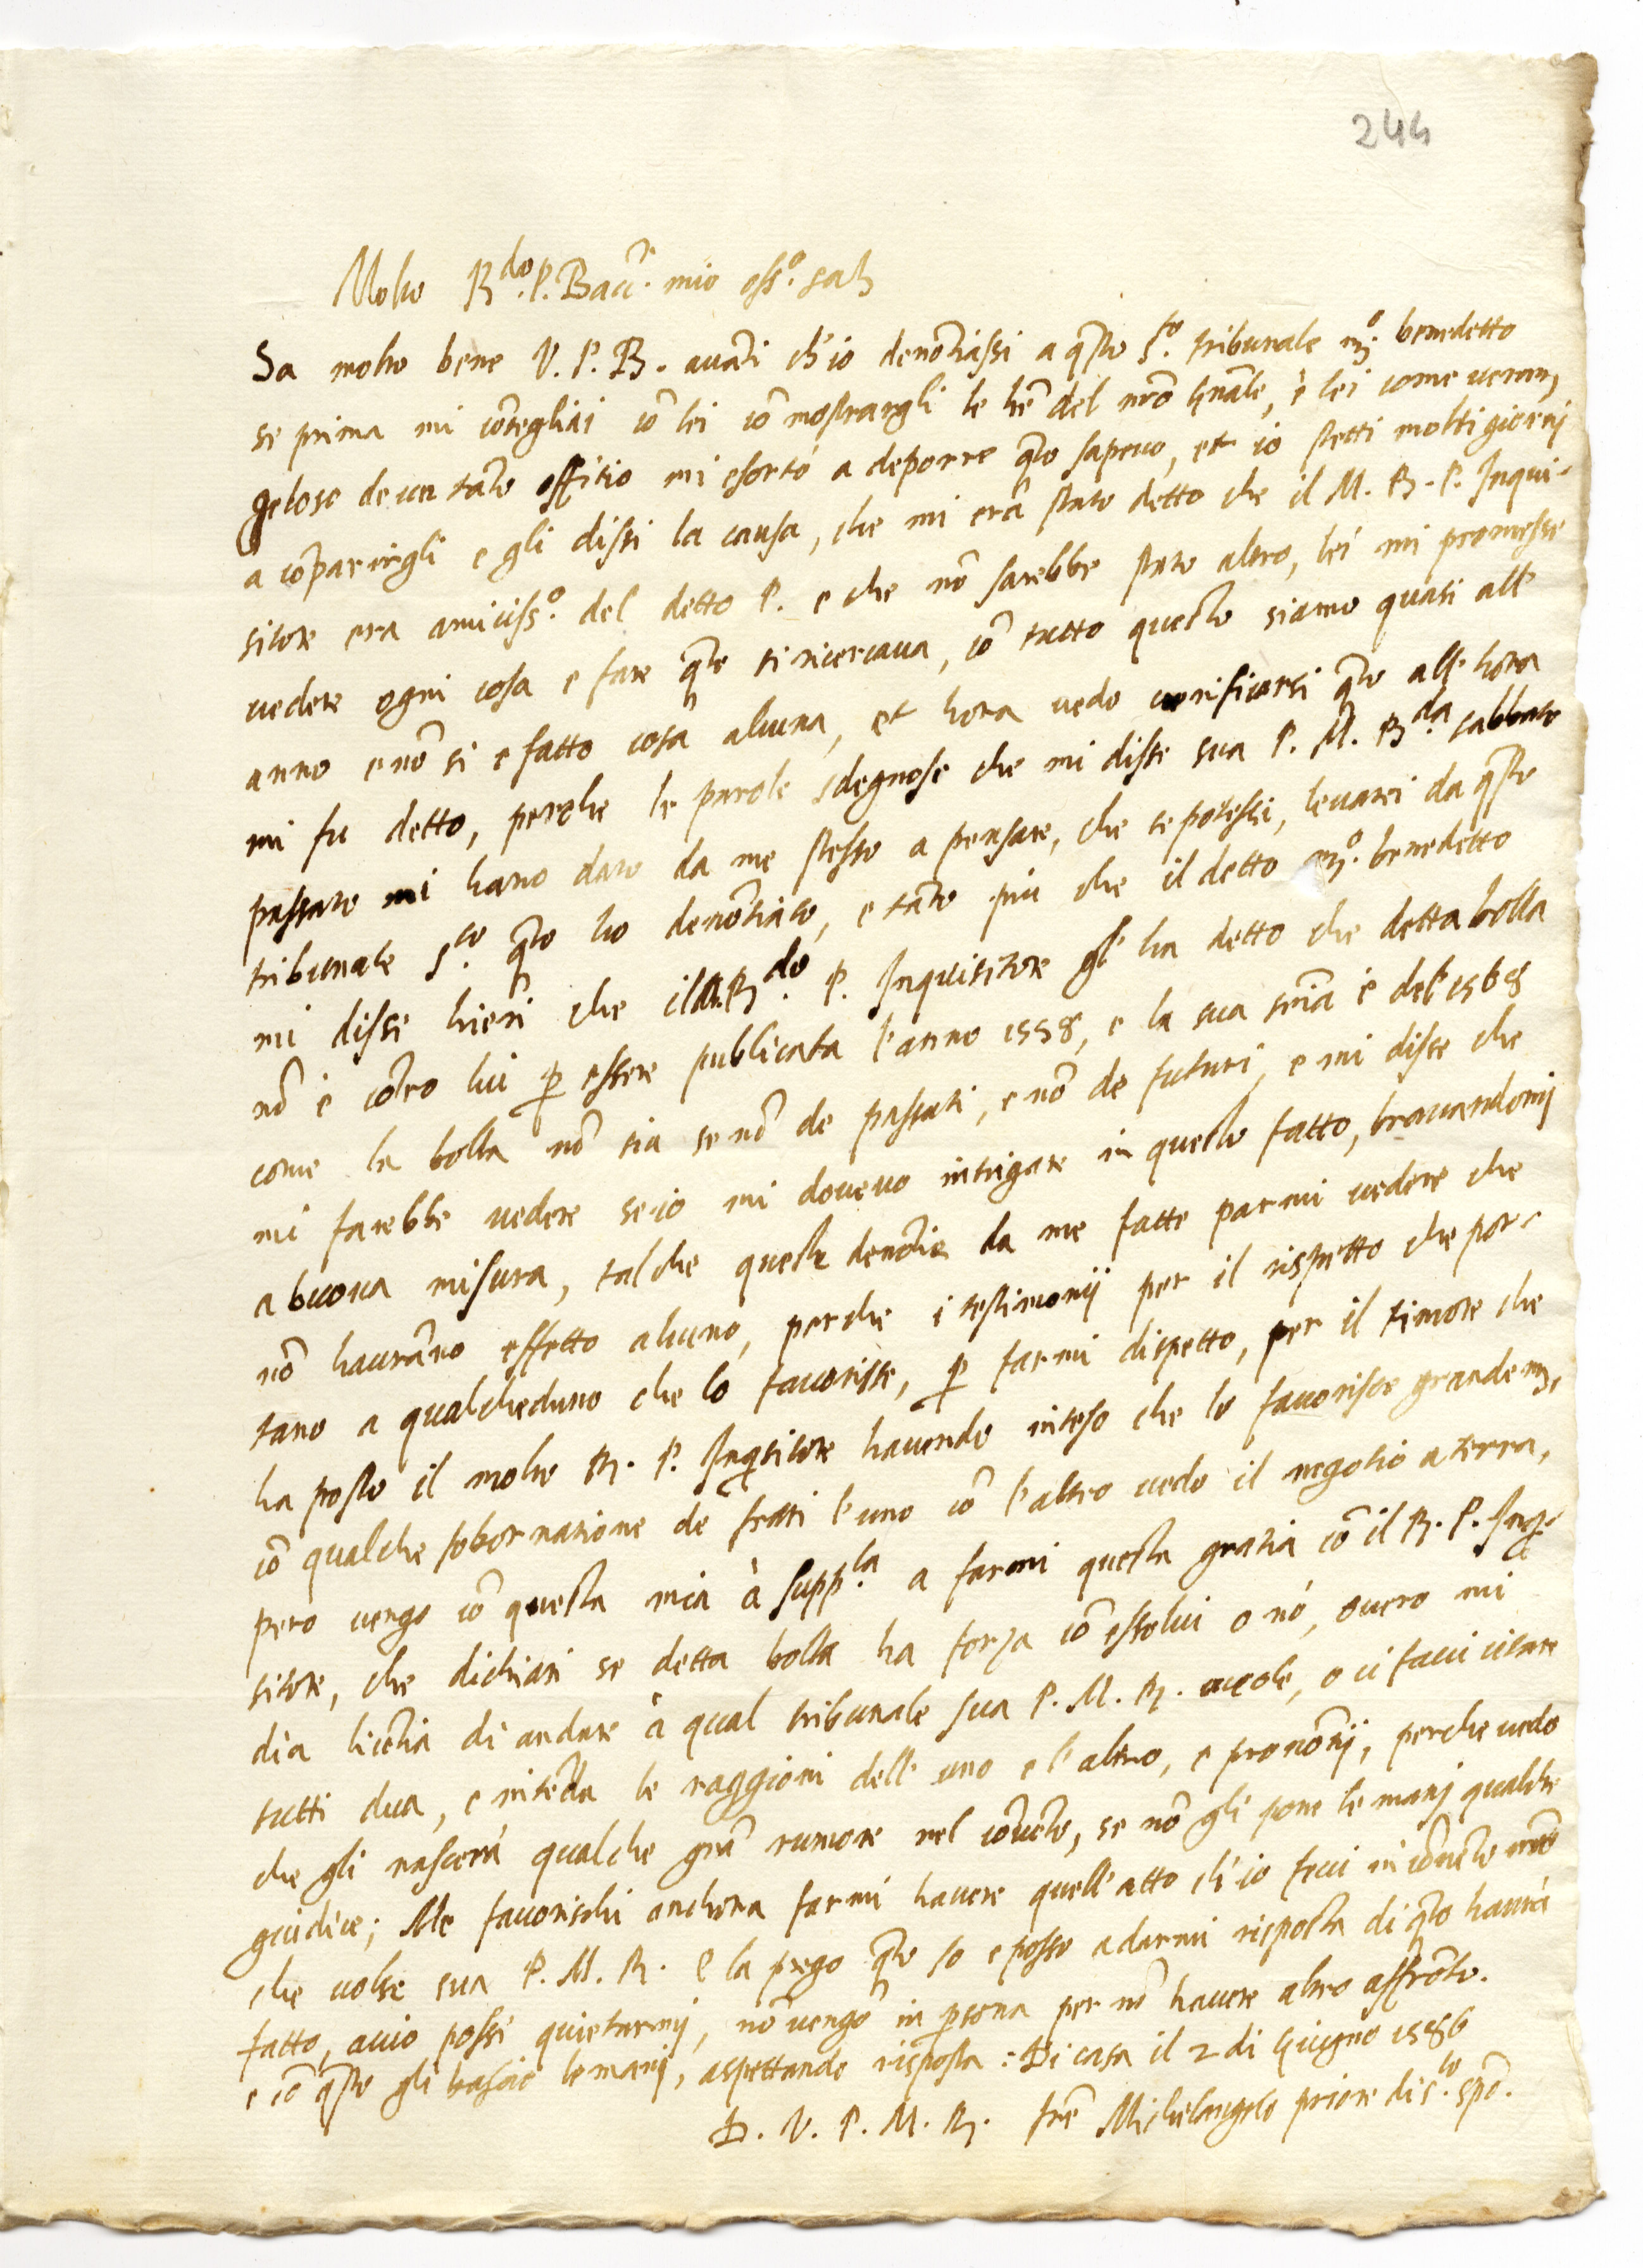 244
Molto R.do P. Bacc.re mio oss.o sal
Sa molto bene V. P. R. auãti ch'io denõtiassi a q̃sto s.to tribunale m.o benedetto
se prima mi cõsegliai cõ lei cõ mostrargli le lrẽ del nrõ gñale, è lei come veram,
geloso de un tãto offitio mi esortò a deporre q̃to sapeuo, et io stetti molti giornj
a cõparirgli e gli dissi la causa, che mi erã stato detto che il M. R. P. Inqui-
sitore era amiciss.o del detto P. e che nõ sarebbe stato altro, lei mi promesse
vedere ogni cosa e fare q̃to si ricercaua, cõ tutto questo siamo quasi all'
anno e nõ si e fatto cosa alcuna, et hora vedo verificarsi q̃to all'hora
mi fu detto, perche le parole sdegnose che mi disse sua P. M. R.da sabbato
passato mi hano dato da me stesso a pensare, che se potessi, leuarei da q̃sto
tribunale s.to q̃to ho denõtiato, e tãto più che il detto m.o benedetto
mi disse hieri che il M.R.do P. Inquisitore gl' ha detto che detta bolla
nõ è cõtro lui p essere publicata l'anno 1558, e la sua sñia è del 1568
come la bolla nõ sia se nõ de passati, e nõ de futuri, e mi disse che
mi farebbe vedere se io mi doueuo intrigare in questo fatto, brauandomj
a buona misura, tal che queste denõtie da me fatte parmi vedere che
nõ haurãno effetto alcuno, perche i testimonij per il rispetto che por-
tano a qualcheduno che lo fauorisse, p farmi dispetto, per il timore che
ha posto il molto R. P. Inq̃sitore hauendo inteso che lo fauorisce grandem,
cõ qualche sobornatione de frati l'uno cõ l'altro vedo il negotio a terra,
pero vengo cõ questa mia à supp.la a farmi questa gratia cõ il R. P. Inq̃-
sitore, che dichiari se detta bolla ha forza cõ esso lui o nó, ouero mi
dia licẽtia di andare à qual tribunale sua P. M. R. vuole, o ci facci citare
tutti dua, e intẽda le raggioni dell' uno e l'altro, e pronõtij, perche vedo
che gli nascerà qualche grã rumore nel cõuẽto, se nõ gli pone le manj qualche
giudice; Me fauorischi anchora farmi hauere quell'atto ch'io feci in cõuẽto nrõ
che volse sua P. M. R. E la prego q̃to so e posso a darmi risposta di q̃to haurà
fatto, acciò possi quietarmj, nõ vengo in psona per nõ hauere altro affrõto.
e cõ q̃sto gli bascio le manj, aspettando risposta: Di casa il 2 di Giugno 1586
D. V. P. M. R. frẽ Michelangelo priore di s.to spõ.